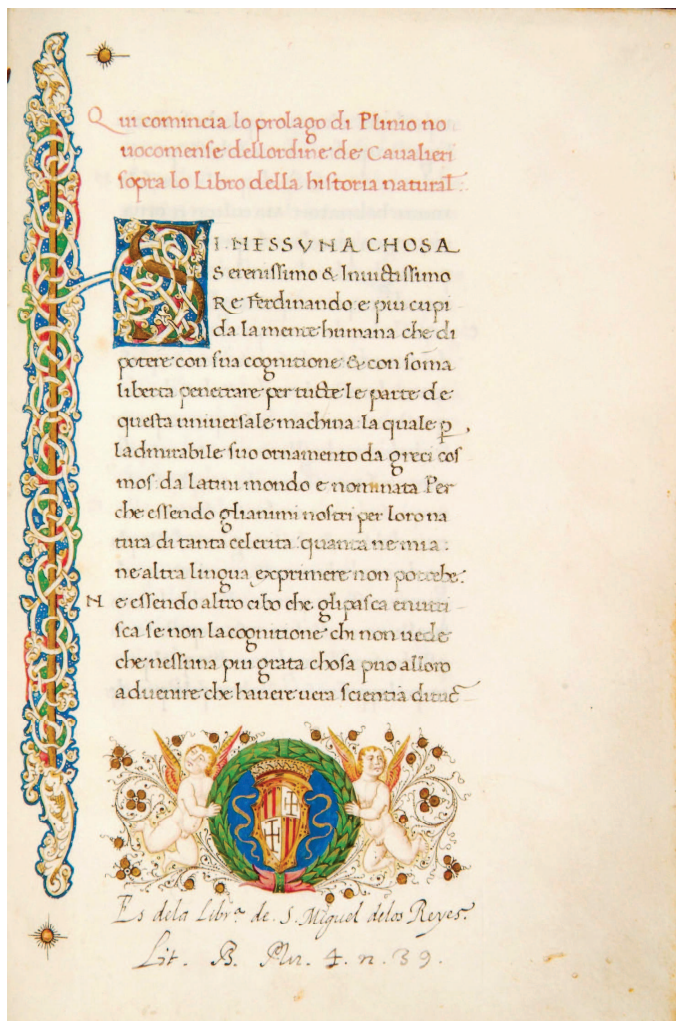 Qui comincia lo prologo di Plinio no
uocomense dellordine de Cavalieri
sopra lo Libro della historia natural:
SI NESSVNA CHOSA
Serenissimo & Inuictissimo
Re Ferdinando e piu cupi-
da la mente humana che di
potere con sua cognitione & con soma
liberta penetrare per tucte le parte de
questa uniuersale machina la quale p,
ladmirabile suo ornamento da greci cos
mos da latini mondo e nominata Per
che essendo glianimi nostri per loro na
tura di tanta celerita quanta ne mia:
ne altra lingua exprimere non potrebe:
Ne essendo altro cibo che gli pasca enutri-
sca se non la cognitione chi non uede
che nessuna piu grata chosa puo alloro
aduenire che hauere uera scientia di tuct
Es dela Libr.ª de. S. Miguel delos Reyes.
Lit. B. Plu. 4. n. 39.